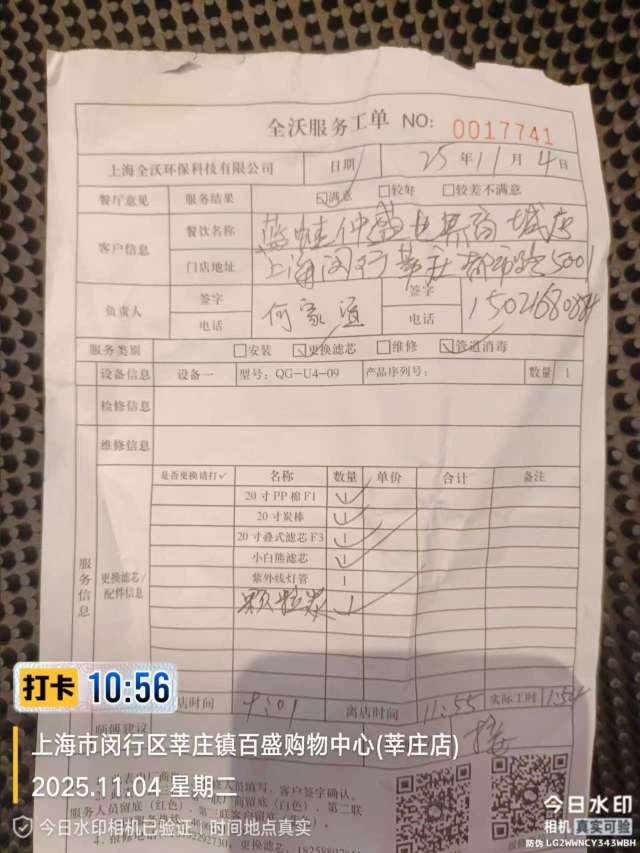 全沃服务工单 NO: 0017741
上海全沃环保科技有限公司 日期 25 年 11 月 4 日
餐厅意见 服务结果 ☑满意 □较好 □较差不满意
客户信息 餐饮名称 蓝蛙仲盛世界商城店
门店地址 上海闵行莘庄都市路5001
负责人 签字 何家 签字
电话 电话
服务类别 □安装 ☑更换滤芯 □维修 ☑管道消毒
设备信息 设备一 型号: QG-U4-09 产品序列号: 数量 1
检修信息
维修信息
服务信息
更换滤芯/配件信息
是否更换请打✓ 名称 数量 单价 合计 备注
20寸PP棉F1 1
20寸炭棒 1
20寸叠式滤芯F3 1
小白熊滤芯 1
紫外线灯管 1
颗粒炭 1
店时间 离店时间 11:55 实际工时
师傅建议
打卡 10:56
上海市闵行区莘庄镇百盛购物中心(莘庄店)
2025.11.04 星期二
填写、客户签字确认。
服务人员留底（红色）、第二联
今日水印相机已验证 时间地点真实
今日水印
相机 真实可验
防伪 LG2WWNCY343WBH